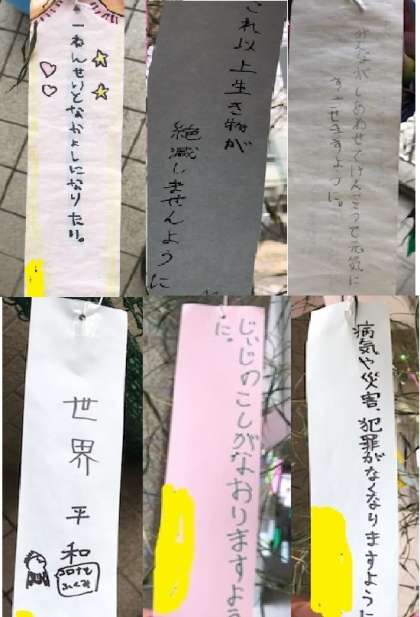 一ねんせいとなかよしになりたい。
これ以上生き物が
絶滅しませんように
みんながしあわせでけんこうで元気に
すごせますように。
世界平和
コロナも
ふくめ
じぃじのこしがなおりますよう
に。
病気や災害、犯罪がなくなりますように